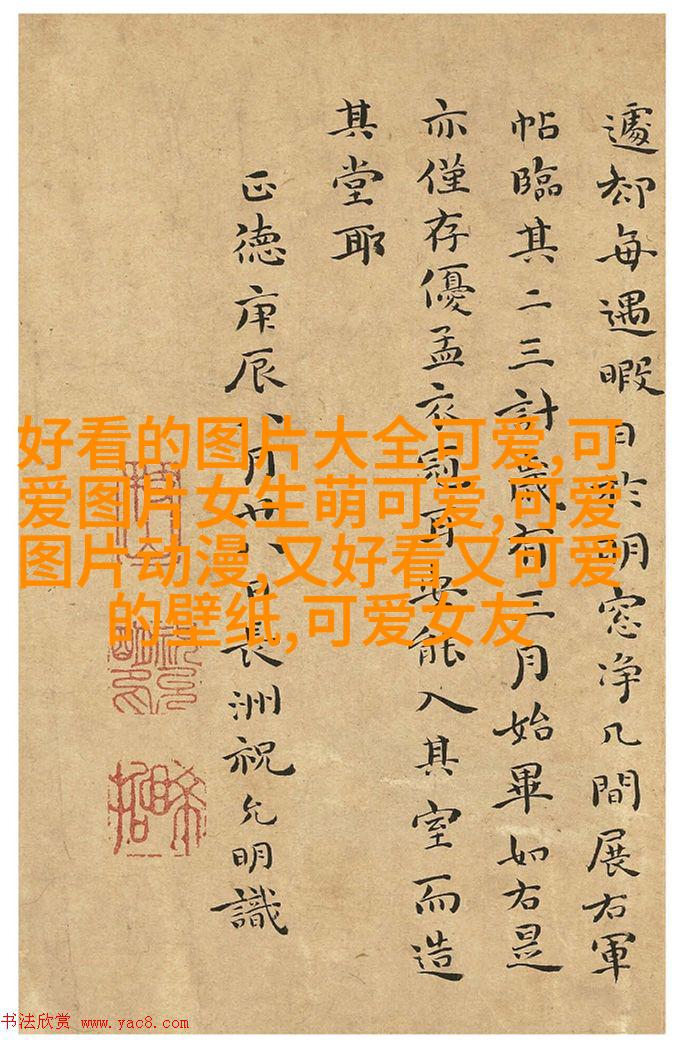 遽却每遇暇日於明窓净几間展右軍
帖臨其二三計歲有三月始畢如右是
亦僅存優孟衣冠耳安能入其室而造
其堂耶
正德庚辰八月廿八日長洲祝允明識
好看的图片大全可爱,可
爱图片女生萌可爱,可爱
图片动漫,又好看又可爱
的壁纸,可爱女友
书法欣赏 www.yac8.com